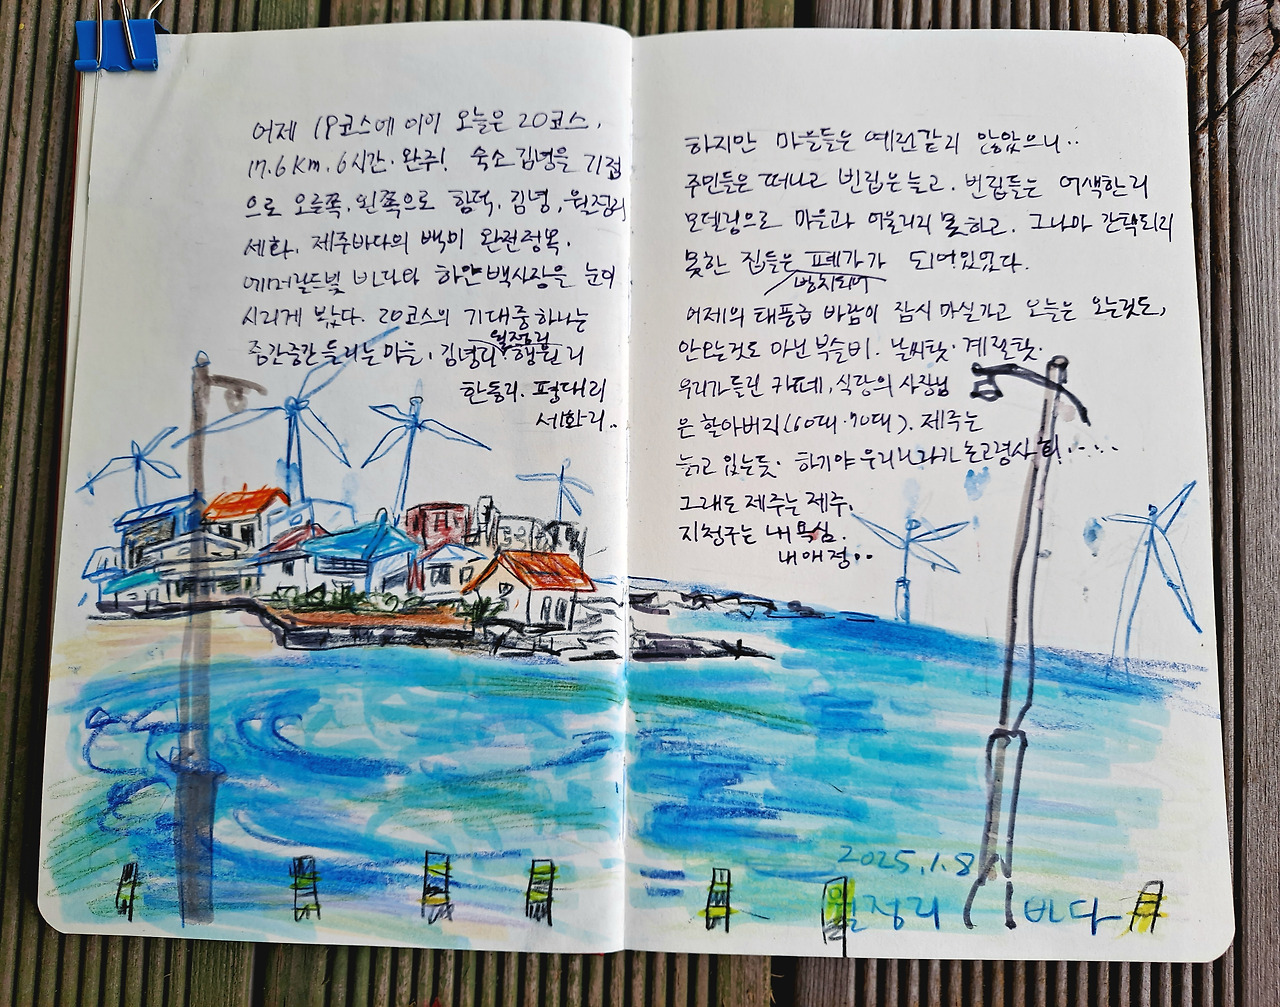 어제 18코스에 이어 오늘은 20코스.
17.6km. 6시간. 완주! 숙소 김녕을 기점
으로 오른쪽. 왼쪽으로 함덕. 김녕, 월정리
세화. 제주바다의 백미 완전정복.
에머럴드빛 바다와 하얀 백사장을 눈이
시리게 봤다. 20코스의 기대중 하나는
중간중간 들리는 마을. 김녕리 월정리 행원리
한동리. 평대리
세화리..
하지만 마을들은 예전같지 않았으니..
주민들은 떠나고 빈집은 늘고. 빈집들는 어색한 리
모델링으로 마을과 어울리지 못하고. 그나마 간택되지
못한 집들은 방치되어 폐가가 되어있었다.
어제의 태풍급 바람이 잠시 마실가고 오늘은 오는것도,
안오는것도 아닌 부슬비. 날씨탓. 계절탓.
우리가 들린 카페, 식당의 사장님
은 할아버지(60대·70대). 제주는
늙고 있는듯. 하기야 우리나라가 초고령사회.....
그래도 제주는 제주.
지청구는 내 욕심.
내 애정..
2025.1.8
월정리 바다